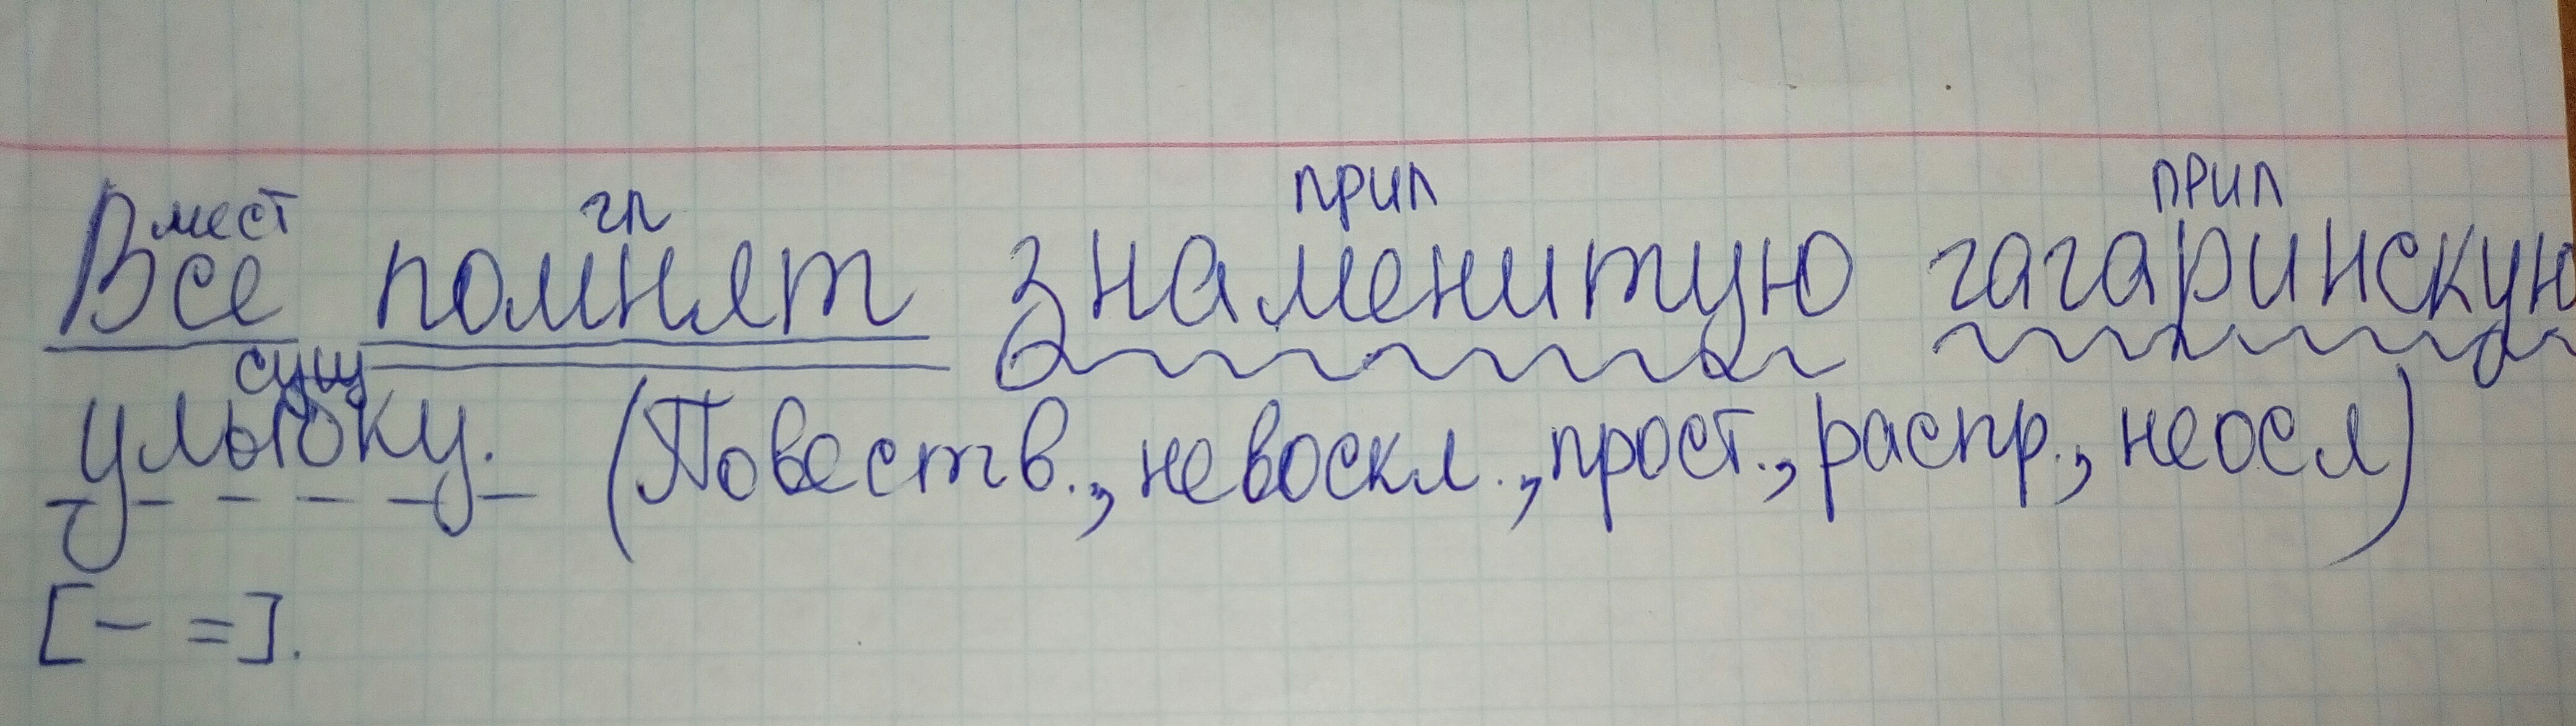 мест гл прил прил
Все помнят знаменитую гагаринскую
сущ
улыбку. (Повеств., невоскл., прост., распр., неосл)
[– =].